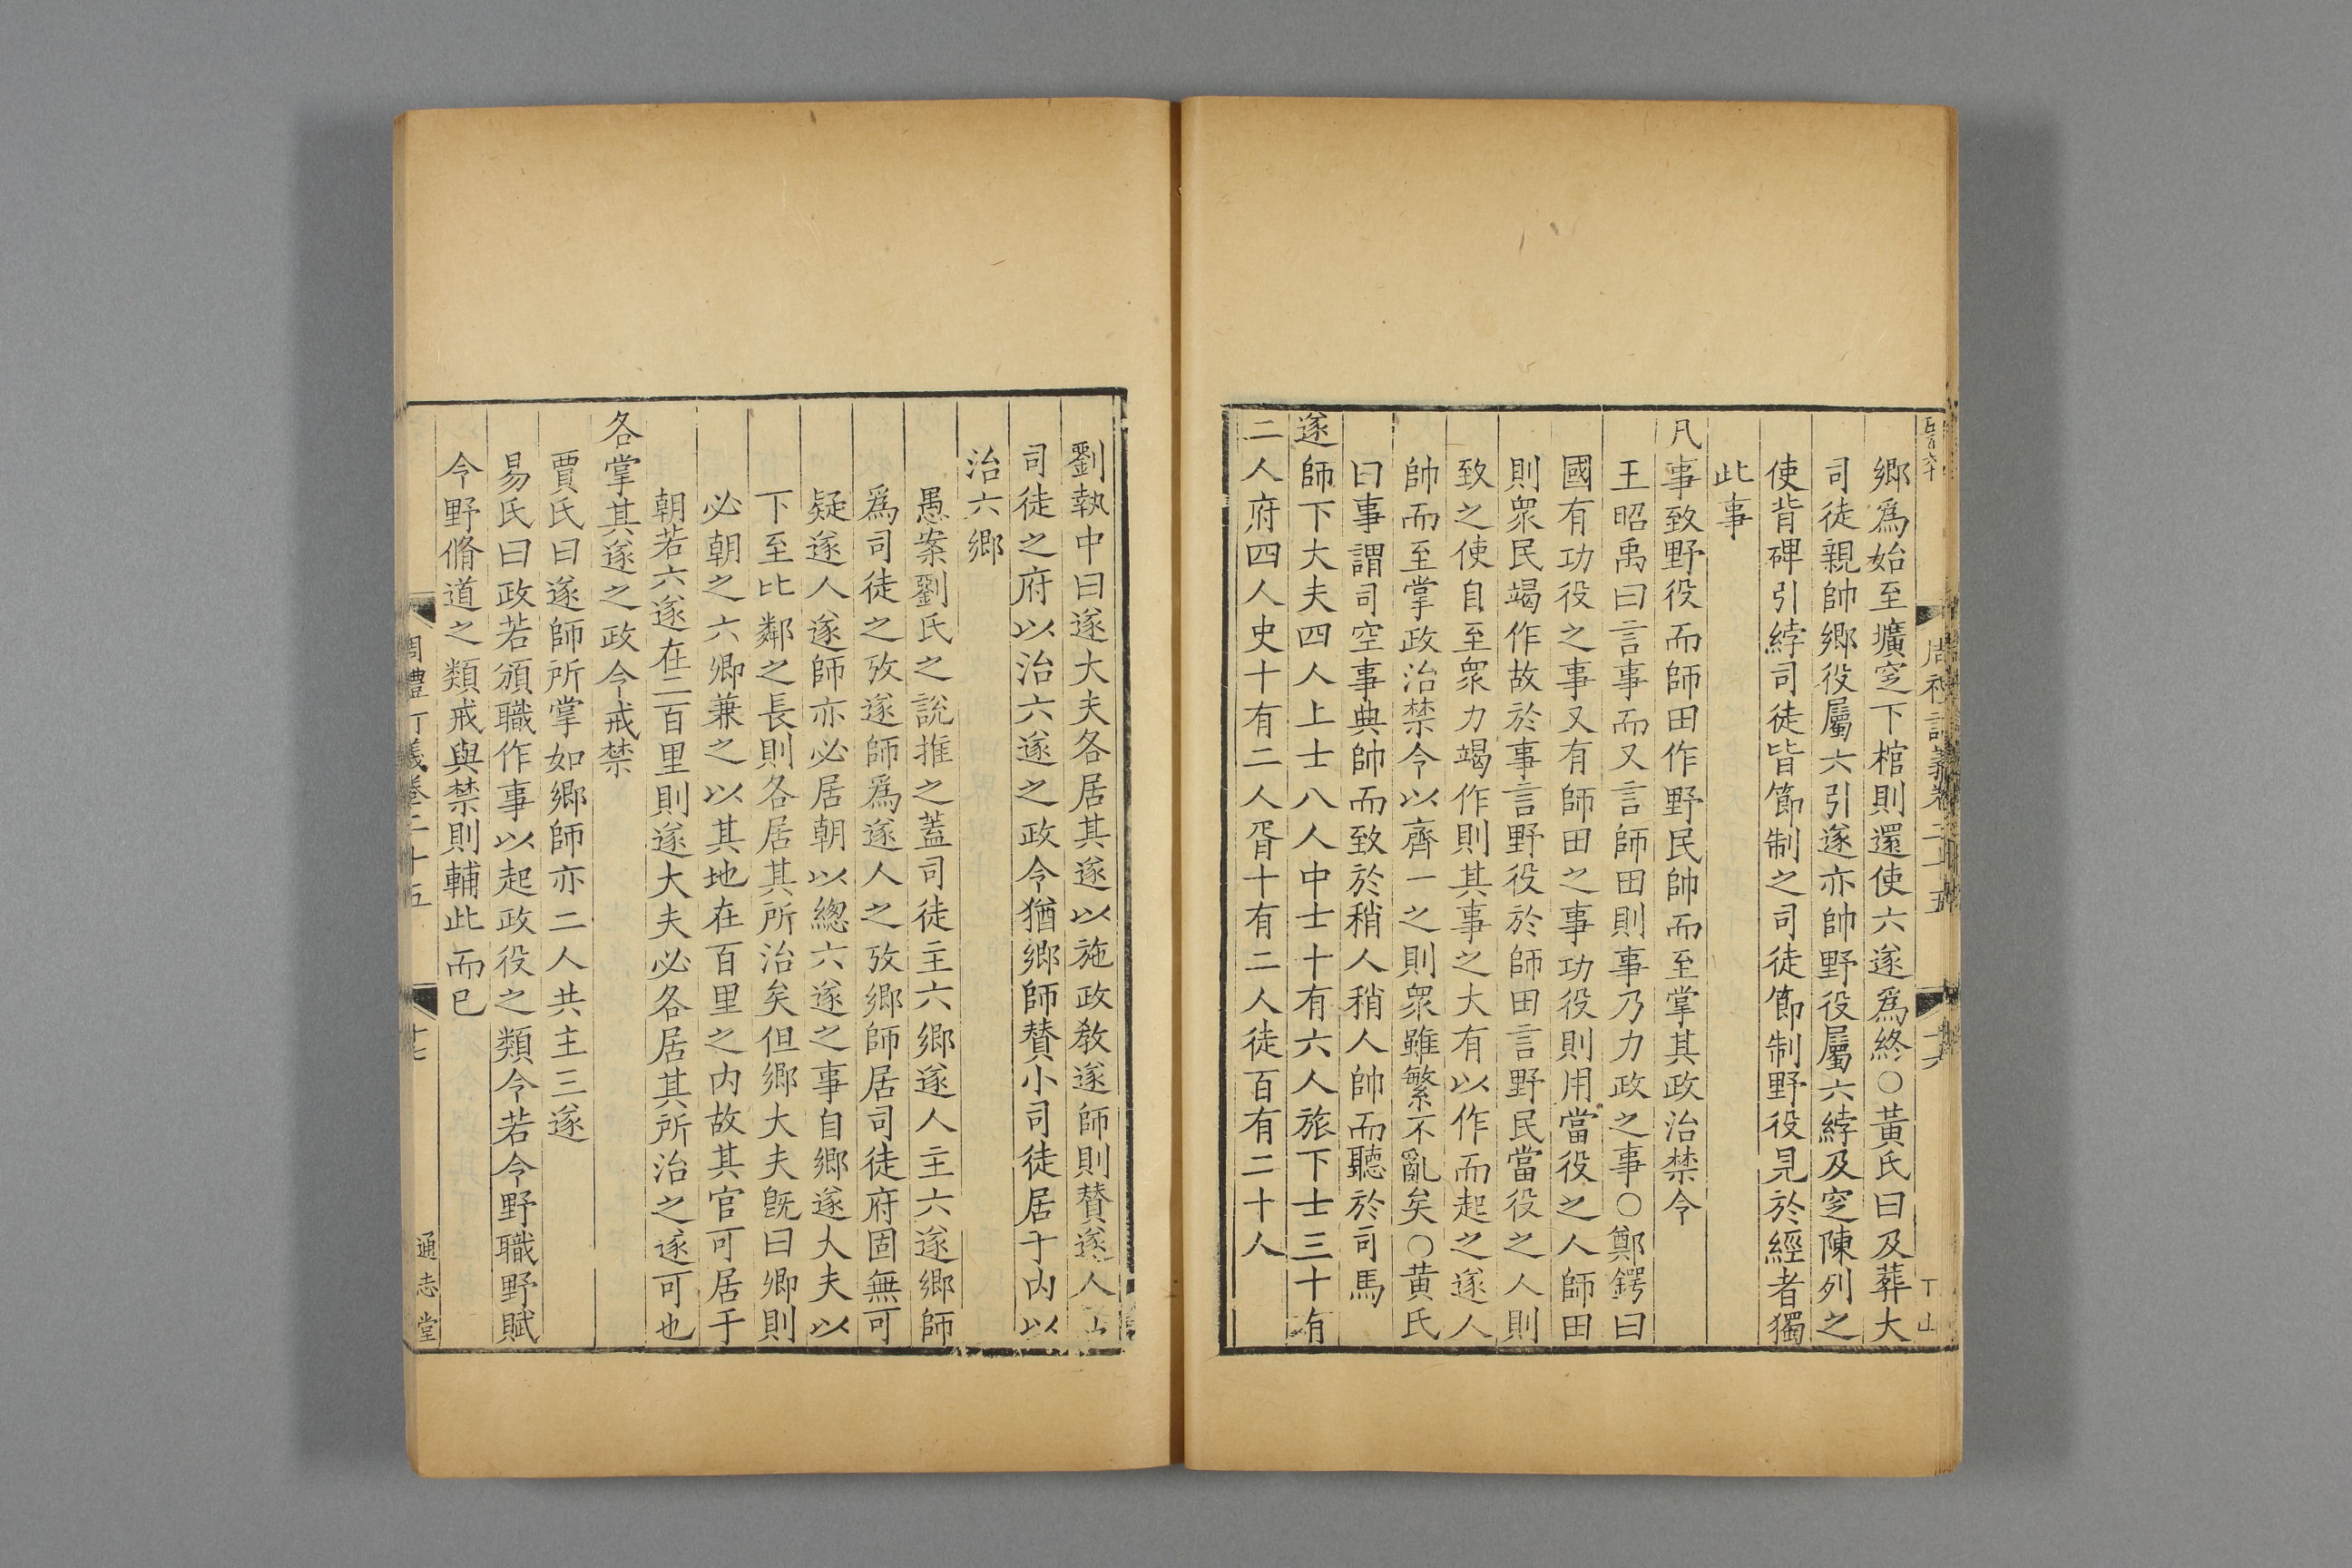 鄉爲始至壙窆下棺則還使六遂爲終○黃氏曰及葬大
司徒親帥鄉役屬六引遂亦帥野役屬六綍及窆陳列之
使背碑引綍司徒皆節制之司徒節制野役見於經者獨
此事
凡事致野役而師田作野民帥而至掌其政治禁令
王昭禹曰言事而又言師田則事乃力政之事○鄭鍔曰
國有功役之事又有師田之事功役則用當役之人師田
則衆民竭作故於事言野役於師田言野民當役之人則
致之使自至衆力竭作則其事之大有以作而起之遂人
帥而至掌政治禁令以齊一之則衆雖繁不亂矣○黃氏
曰事謂司空事典帥而致於稍人稍人帥而聽於司馬
遂師下大夫四人上士八人中士十有六人旅下士三十有
二人府四人史十有二人胥十有二人徒百有二十人
劉執中曰遂大夫各居其遂以施政敎遂師則賛遂人
司徒之府以治六遂之政令猶鄉師賛小司徒居于内以
治六鄉
愚案劉氏之說推之蓋司徒主六鄉遂人主六遂鄉師
爲司徒之攷遂師爲遂人之攷鄉師居司徒府固無可
疑遂人遂師亦必居朝以總六遂之事自鄉遂大夫以
下至比鄰之長則各居其所治矣但鄉大夫旣曰卿則
必朝之六卿兼之以其地在百里之内故其官可居于
朝若六遂在二百里則遂大夫必各居其所治之遂可也
各掌其遂之政令戒禁
賈氏曰遂師所掌如鄉師亦二人共主三遂
易氏曰政若頒職作事以起政役之類令若令野職野賦
令野脩道之類戒與禁則輔此而已
周禮訂義卷二十五
十七
通志堂